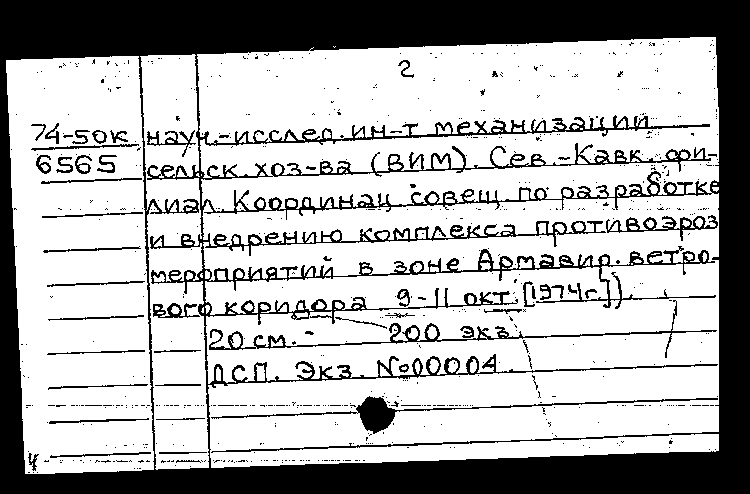 2
74-50к науч.-исслед. ин-т механизации
6565 сельск. хоз-ва (ВИМ). Сев.-Кавк. фи-
лиал. Координац. совещ. по разработке
и внедрению комплекса противоэроз
мероприятий в зоне Армавир. ветро-
вого коридора 9-11 окт. [1974г.]).
20 см. - 200 экз.
ДСП. Экз. №00004.
4